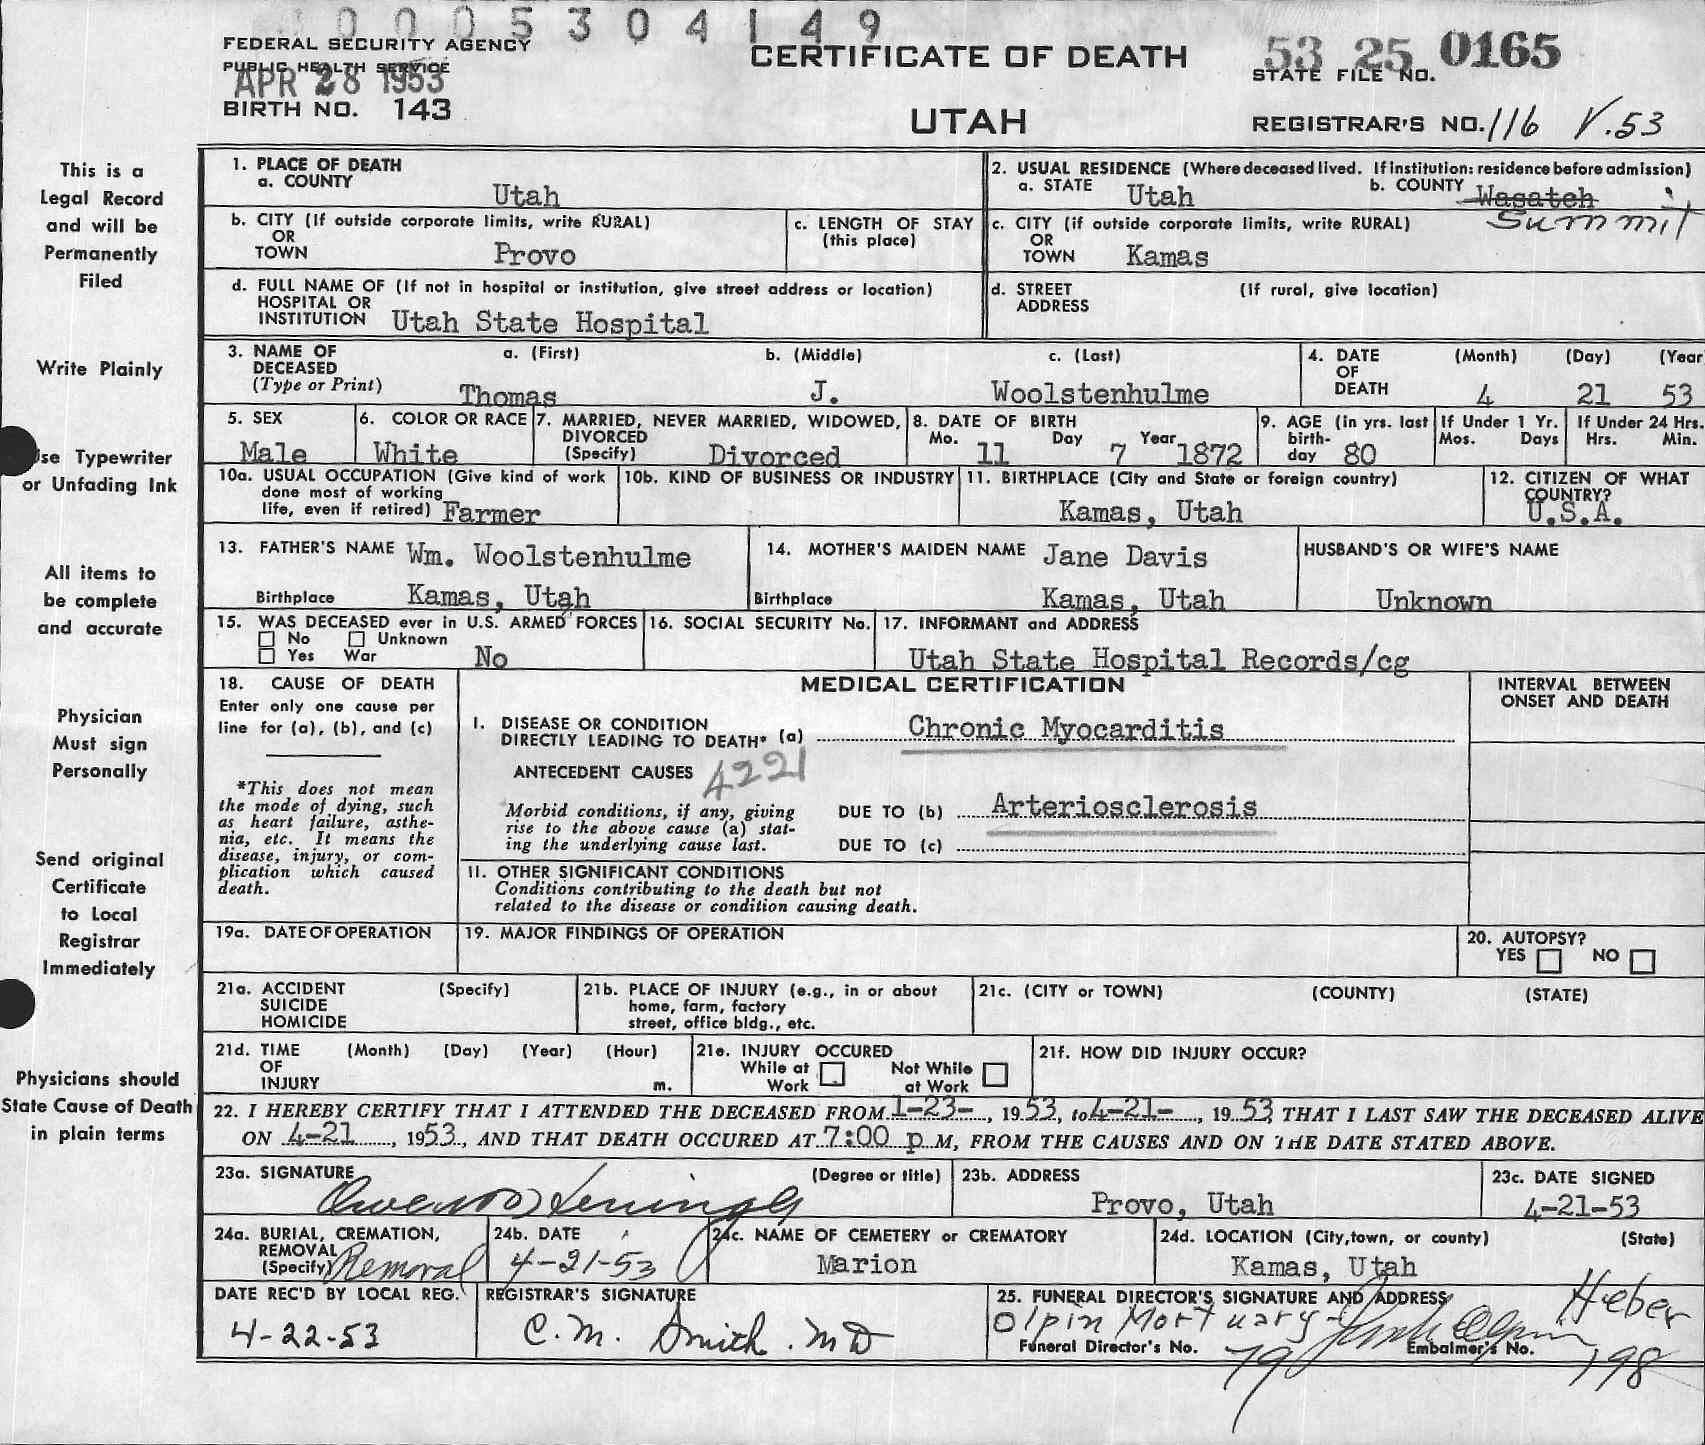 0005304149
FEDERAL SECURITY AGENCY
PUBLIC HEALTH SERVICE
APR 28 1953
BIRTH NO. 143
CERTIFICATE OF DEATH
UTAH
53 25 0165
STATE FILE NO.
REGISTRAR'S NO. 116 V.53
This is a
Legal Record
and will be
Permanently
Filed
Write Plainly
se Typewriter
or Unfading Ink
All items to
be complete
and accurate
Physician
Must sign
Personally
Send original
Certificate
to Local
Registrar
Immediately
Physicians should
State Cause of Death
in plain terms
1. PLACE OF DEATH
a. COUNTY
Utah
2. USUAL RESIDENCE (Where deceased lived. If institution: residence before admission)
a. STATE Utah b. COUNTY Wasatch
Summit
b. CITY (If outside corporate limits, write RURAL)
OR
TOWN Provo
c. LENGTH OF STAY
(this place)
c. CITY (if outside corporate limits, write RURAL)
OR
TOWN Kamas
d. FULL NAME OF (If not in hospital or institution, give street address or location)
HOSPITAL OR
INSTITUTION Utah State Hospital
d. STREET (If rural, give location)
ADDRESS
3. NAME OF DECEASED
(Type or Print)
a. (First) b. (Middle) c. (Last)
Thomas J. Woolstenhulme
4. DATE OF DEATH
(Month) (Day) (Year
4 21 53
5. SEX
Male
6. COLOR OR RACE
White
7. MARRIED, NEVER MARRIED, WIDOWED,
DIVORCED
(Specify) Divorced
8. DATE OF BIRTH
Mo. 11 Day 7 Year 1872
9. AGE (in yrs. last
birth-
day 80
If Under 1 Yr.
Mos. Days
If Under 24 Hrs.
Hrs. Min.
10a. USUAL OCCUPATION (Give kind of work
done most of working
life, even if retired) Farmer
10b. KIND OF BUSINESS OR INDUSTRY
11. BIRTHPLACE (City and State or foreign country)
Kamas, Utah
12. CITIZEN OF WHAT
COUNTRY?
U.S.A.
13. FATHER'S NAME Wm. Woolstenhulme
Birthplace Kamas, Utah
14. MOTHER'S MAIDEN NAME Jane Davis
Birthplace Kamas, Utah
HUSBAND'S OR WIFE'S NAME
Unknown
15. WAS DECEASED ever in U.S. ARMED FORCES
No Unknown
Yes War No
16. SOCIAL SECURITY No.
17. INFORMANT and ADDRESS
Utah State Hospital Records/cg
18. CAUSE OF DEATH
Enter only one cause per
line for (a), (b), and (c)
*This does not mean
the mode of dying, such
as heart failure, asthe-
nia, etc. It means the
disease, injury, or com-
plication which caused
death.
MEDICAL CERTIFICATION
INTERVAL BETWEEN
ONSET AND DEATH
I. DISEASE OR CONDITION
DIRECTLY LEADING TO DEATH* (a) Chronic Myocarditis
ANTECEDENT CAUSES 4221
Morbid conditions, if any, giving
rise to the above cause (a) stat-
ing the underlying cause last.
DUE TO (b) Arteriosclerosis
DUE TO (c)
11. OTHER SIGNIFICANT CONDITIONS
Conditions contributing to the death but not
related to the disease or condition causing death.
19a. DATE OF OPERATION
19. MAJOR FINDINGS OF OPERATION
20. AUTOPSY?
YES NO
21a. ACCIDENT (Specify)
SUICIDE
HOMICIDE
21b. PLACE OF INJURY (e.g., in or about
home, farm, factory
street, office bldg., etc.
21c. (CITY or TOWN) (COUNTY) (STATE)
21d. TIME (Month) (Day) (Year) (Hour)
OF
INJURY m.
21e. INJURY OCCURED
While at Work Not While at Work
21f. HOW DID INJURY OCCUR?
22. I HEREBY CERTIFY THAT I ATTENDED THE DECEASED FROM 1-23-, 1953, to 4-21-, 1953, THAT I LAST SAW THE DECEASED ALIVE
ON 4-21, 1953, AND THAT DEATH OCCURED AT 7:00 p M, FROM THE CAUSES AND ON THE DATE STATED ABOVE.
23a. SIGNATURE (Degree or title)
23b. ADDRESS
Provo, Utah
23c. DATE SIGNED
4-21-53
24a. BURIAL, CREMATION,
REMOVAL
(Specify) Removal
24b. DATE
4-21-53
24c. NAME OF CEMETERY or CREMATORY
Marion
24d. LOCATION (City, town, or county) (State)
Kamas, Utah
DATE REC'D BY LOCAL REG.
4-22-53
REGISTRAR'S SIGNATURE
C.M. Smith. MD
25. FUNERAL DIRECTOR'S SIGNATURE AND ADDRESS
Olpin Mortuary- Heber
Funeral Director's No. 79 Embalmer's No. 198